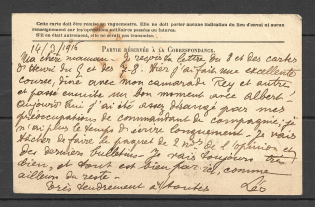 Cette carte doit être remise au vaguemestre. Elle ne doit porter aucune indication du lieu d'envoi ni aucun
renseignement sur les opérations militaires passées ou futures.
S'il en était autrement, elle ne serait pas transmise.
14/2/1916 PARTIE RÉSERVÉE À LA CORRESPONDANCE.
Ma chère maman - Je reçois ta lettre du 8 et des cartes
d'Henri du 7 et des 7-8. Hier j'ai fait une excellente
course, dîné avec mon camarade Rey et autre
et passé ensuite un bon moment avec Albert -
aujourd'hui j'ai été assez dérangé par mes
préoccupations de commandant de compagnie, je
n'ai plus le temps d'écrire longuement. Je vais
tâcher de faire le paquet de 2 nos de l'Opinion et
des derniers bulletins - Je vais toujours très
bien, et tout est bien par ici, comme
ailleurs du reste -
Très tendrement à toutes Léo